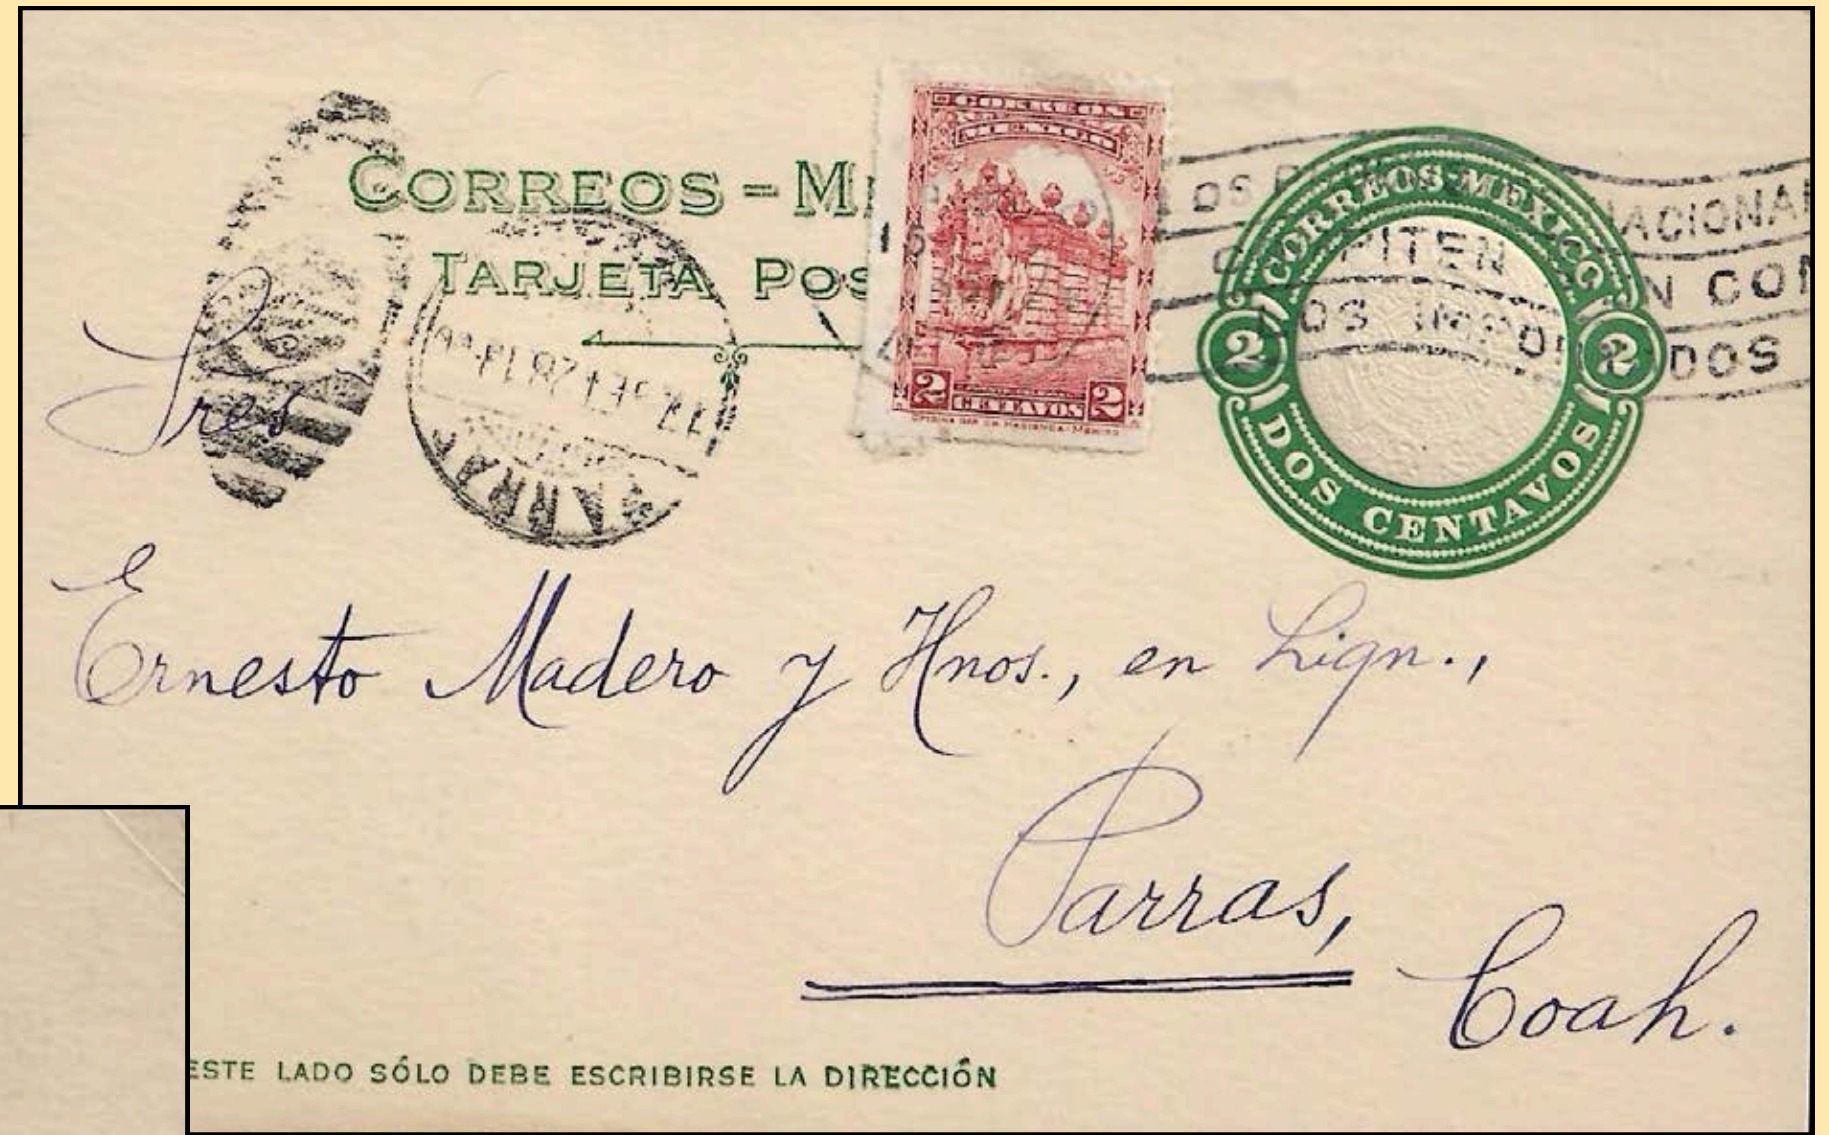 CORREOS - M
TARJETA POS
CORREOS
MEXICO
2 CENTAVOS 2
CORREOS MEXICO
2 2
DOS CENTAVOS
LOS
NACIONA
PITEN
N CON
LOS
DOS
PARRA
Sres
Ernesto Madero y Hnos., en Liqn.,
Parras,
Coah.
ESTE LADO SÓLO DEBE ESCRIBIRSE LA DIRECCIÓN